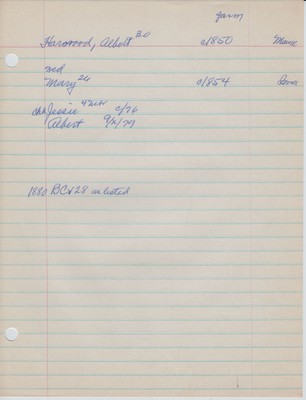 farm
Harwood, Albert 30 c/1850 Maine
md
"Mary" 26 c/1854 Iowa
ch Jessie 4 c/76
Albert 9/2/79
1880 BCV28 as listed